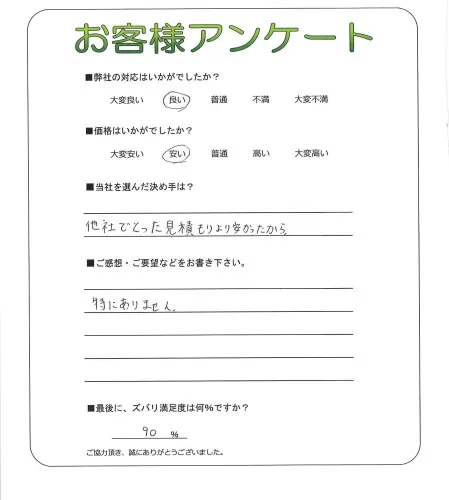 お客様アンケート
■弊社の対応はいかがでしたか？
大変良い 良い 普通 不満 大変不満
■価格はいかがでしたか？
大変安い 安い 普通 高い 大変高い
■当社を選んだ決め手は？
他社でとった見積もりより安かったから
■ご感想・ご要望などをお書き下さい。
特にありません。
■最後に、ズバリ満足度は何％ですか？
90 ％
ご協力頂き、誠にありがとうございました。